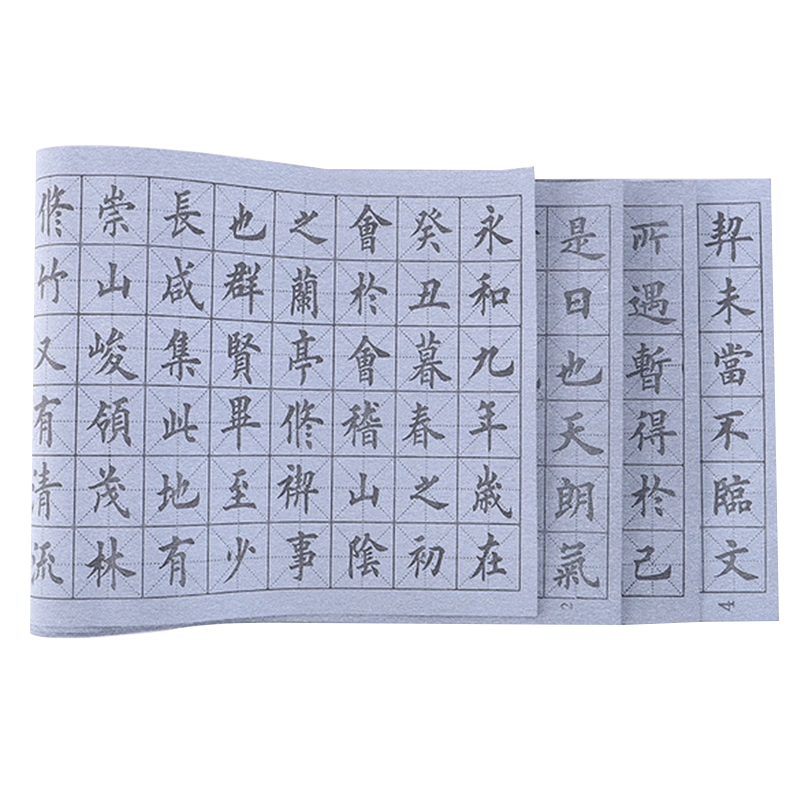 永和九年歲在
癸丑暮春之初
會於會稽山陰
之蘭亭修禊事
也群賢畢至少
長咸集此地有
崇山峻領茂林
修竹又有清流
是日也天朗氣
2
所遇暫得於己
契未當不臨文
4